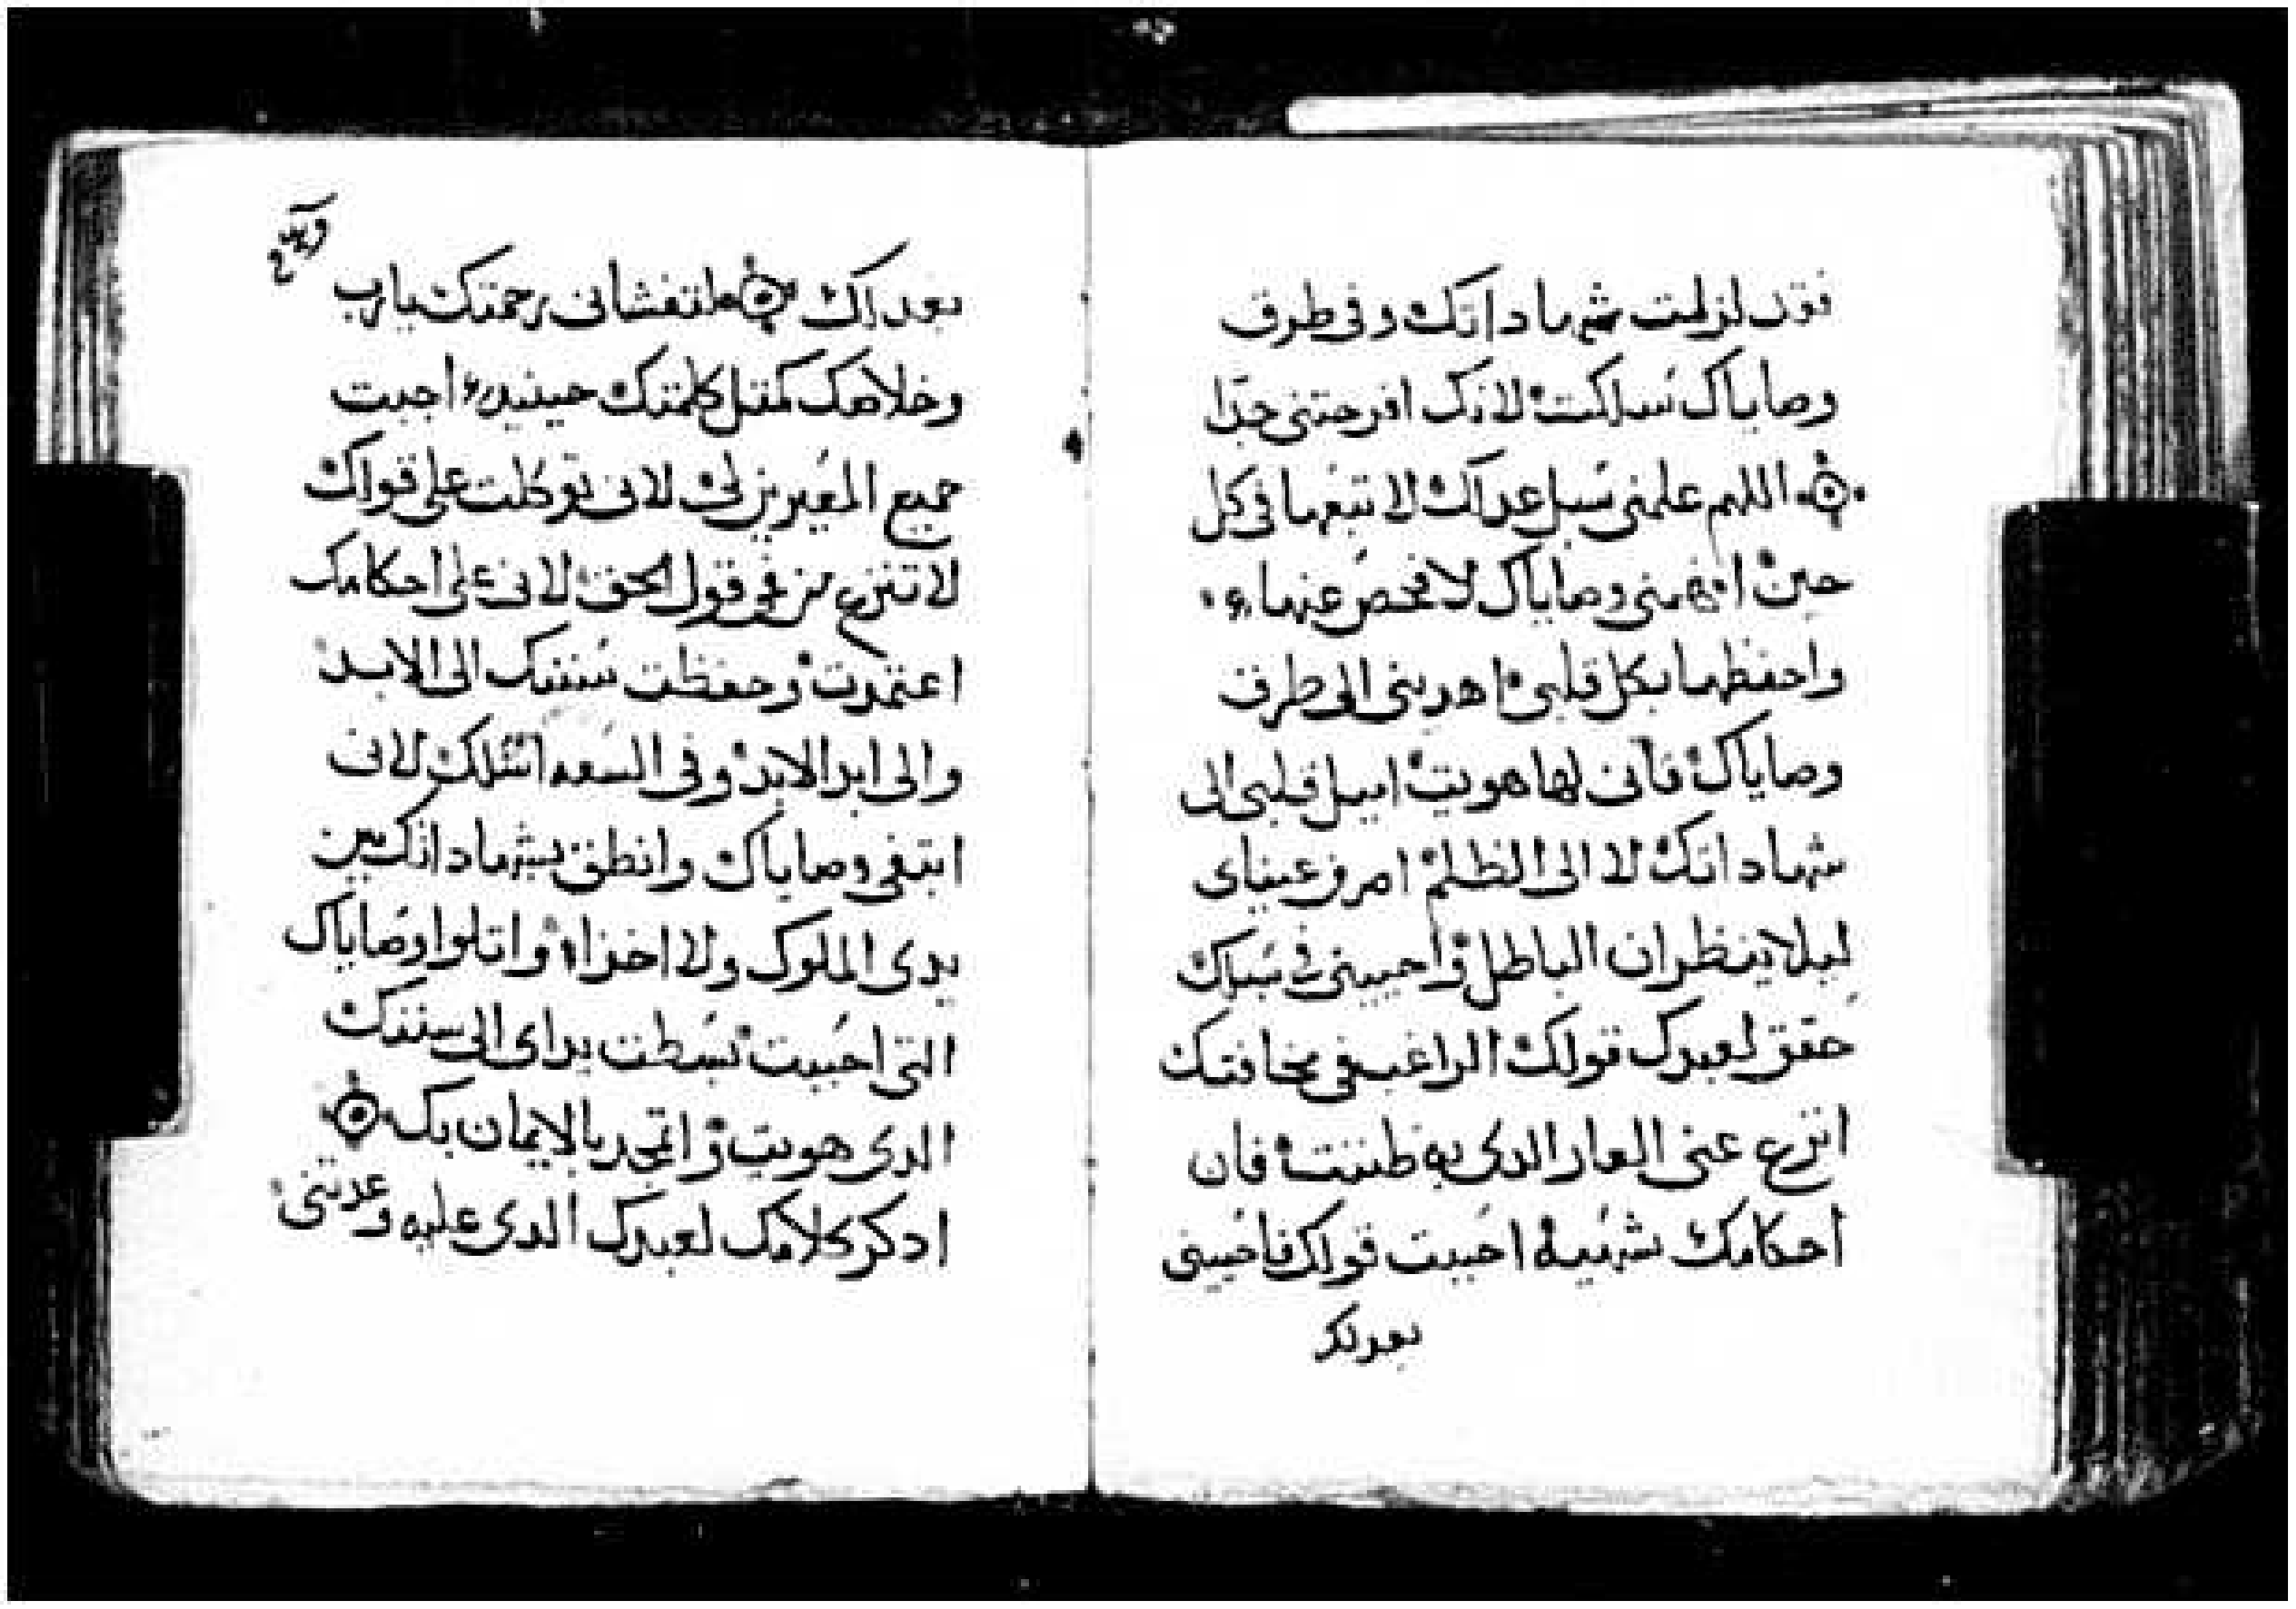 فقد لزمت شهاداتك وفى طرق
وصاياك سلكت لانك افرحتنى جدّا
اللهم علمنى سبل عدلك لاتبعها فى كل
حين افهمنى وصاياك لافحص عنها
واحفظها بكل قلبى اهدينى الى طرق
وصاياك فانى لها هويت اميل قلبى الى
شهاداتك لا الى الظلم امرف عيناى
ليلا ينظران الباطل واحيينى فى سبلك
حقق لعبدك قولك الراغب فى مخافتك
انزع عنى العار الدى به ظننت فان
احكامك شهيه احببت قولك فاحينى
بعدلك
بعدلك ولتغشانى رحمتك يارب
وخلاصك كمثل كلمتك حينيد اجبت
جميع المعيرين لى لانى توكلت على قولك
لا تنزع من فى قول الحق لانى على احكامك
اعتمدت وحفظت سننك الى الابد
والى ابد الابد وفى السعه اسلك لانى
ابتغى وصاياك وانطق بشهاداتك بين
يدى الملوك ولا اخزا واتلوا وصاياك
التى احببت بسطت يداى الى سننك
الدى هويت واتجد بالايمان بك
ادكر كلامك لعبدك الدى عليه وعدتنى